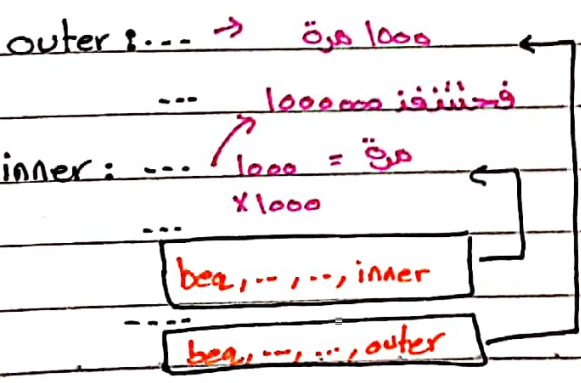 outer : ... → 1000 مرة
... فحتتنفذ 1000000
inner : ... 1000 = مرة
x 1000
...
beq, .., .., inner
....
beq, ..., ..., outer